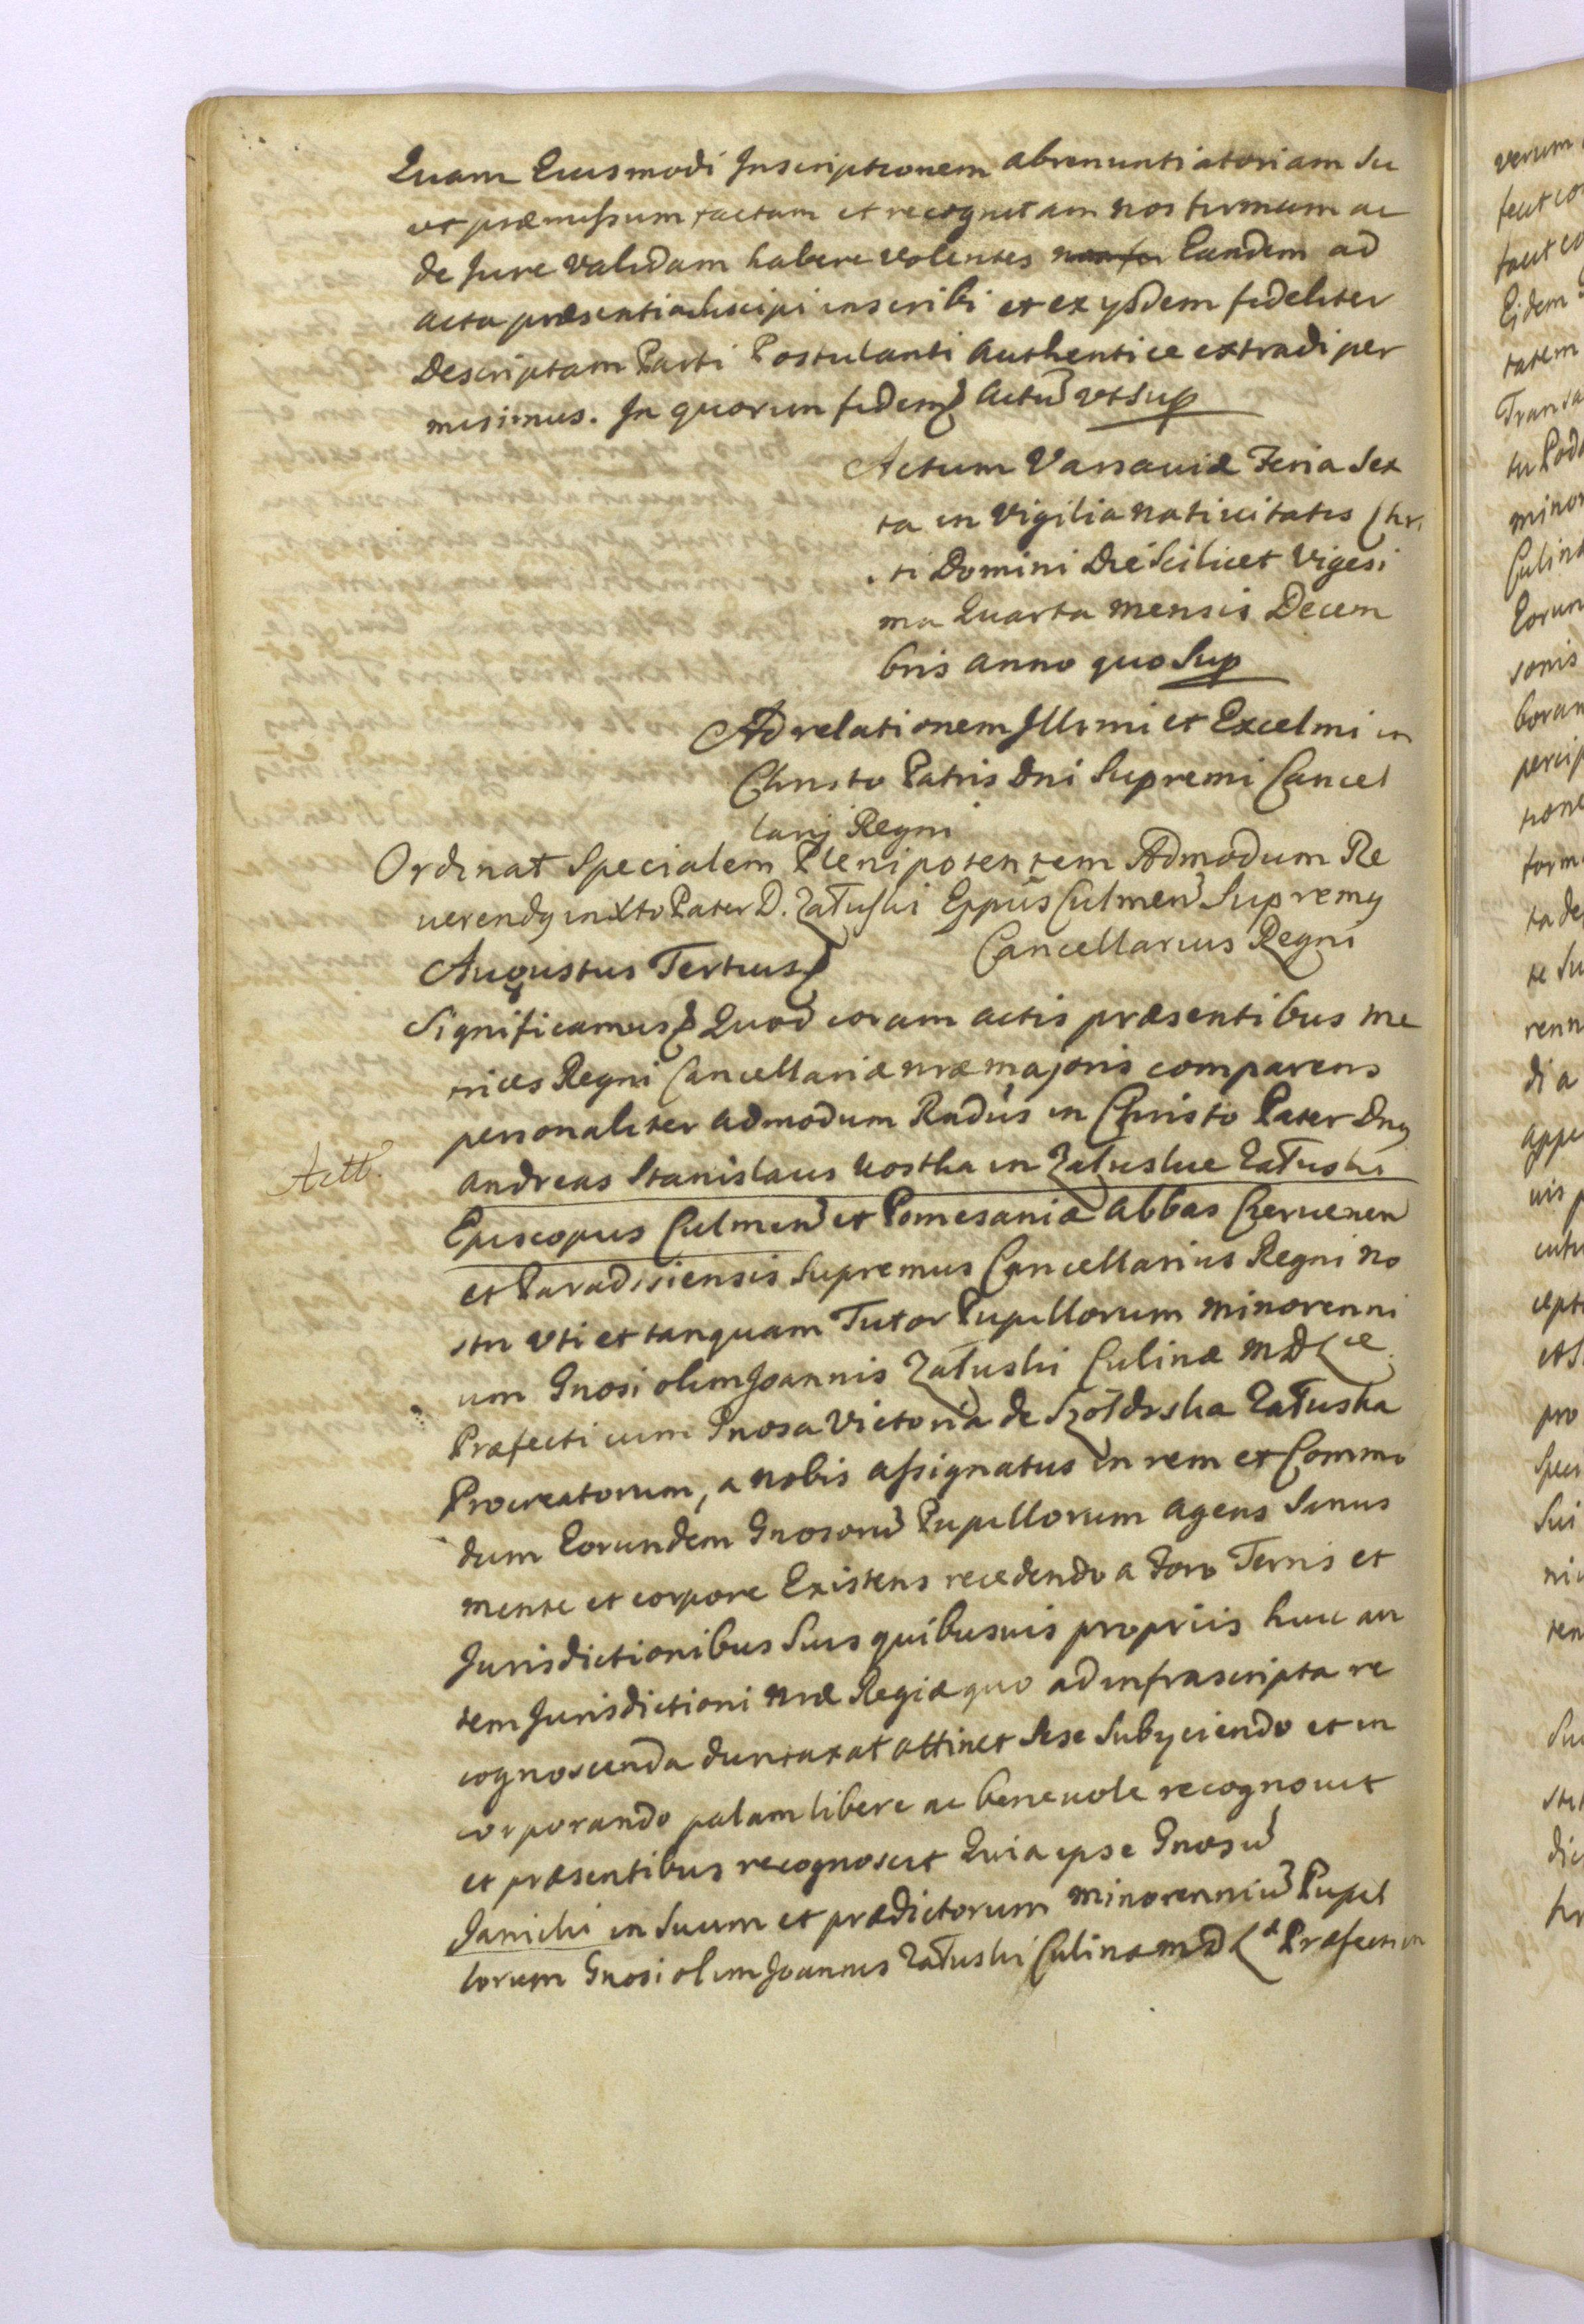 Quam Eiusmodi Inscriptionem abrenuntiatoriam Su
ut præmissum factam et recognitam nos firmam ac
de Jure validam habere volentes Eandem ad
acta præsentia suscipi inscribi et ex ysdem fideliter
Descriptam Parti Postulanti Authentice extradi per
misimus. In quorum fidem Actu ut Sup
Actum Varsaviæ Feria Sex
ta in Vigilia nativitatis Chri
sti Domini Die Scilicet Vigesi
ma Quarta mensis Decem
bris anno quo Sup
Ad relationem Illrmi et Excelmi in
Christo Patris Dni Supremi Cancel
larij Regni
Ordinat Specialem Plenipotentem Admodum Re
uerendy in Xto Pater D. Załuski Eppus Culmen Supremy
Cancellarius Regni
Augustus Tertius
Significamus Quod coram actis præsentibus me
trices Regni Cancellariæ nræ majoris comparens
personaliter admodum Rndus in Christo Pater Dny
Actt.
Andreas Stanislaus Kostka in Załuskie Załuski
Episcopus Culmen et Pomesaniæ Abbas Czerwenen
et Paradisiensis Supremus Cancellarius Regni no
stri Uti et tanquam Tutor Pupillorum minorenni
um Gnosi olim Joannis Załuski Culinæ M D L ce
Præfecti cum Gnosa Victoria de Szołdrska Załuska
Procreatorum, a nobis assignatus in rem et Commo
dum Eorundem Gnosoru Pupillorum agens Sanus
mente et corpore Existens recedendo a Foro Terris et
Jurisdictionibus Suis quibusuis propriis huic au
tem Jurisdictioni nræ Regiæ quo ad infrascripta re
cognoscenda duntaxat attinet Sese Subyciendo et in
corporando palam libere ac beneuole recognouit
et præsentibus recognoscit Quia ipse Gnosu
Janicki in Suum et prædictorum minorenniu Pupil
lorum Gnosi olim Joannis Załuski Culinæ M D L Præfecti